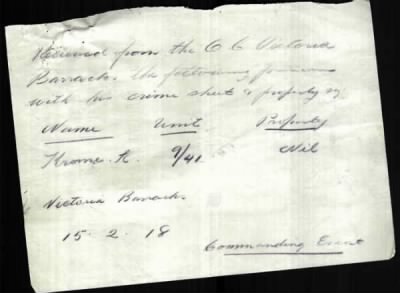 Received from the O C Victoria
Barracks the following
with his crime sheet & property
Name Unit Property
Krome. A. 9/41 Nil
Victoria Barracks
15. 2. 18
Commanding Escort